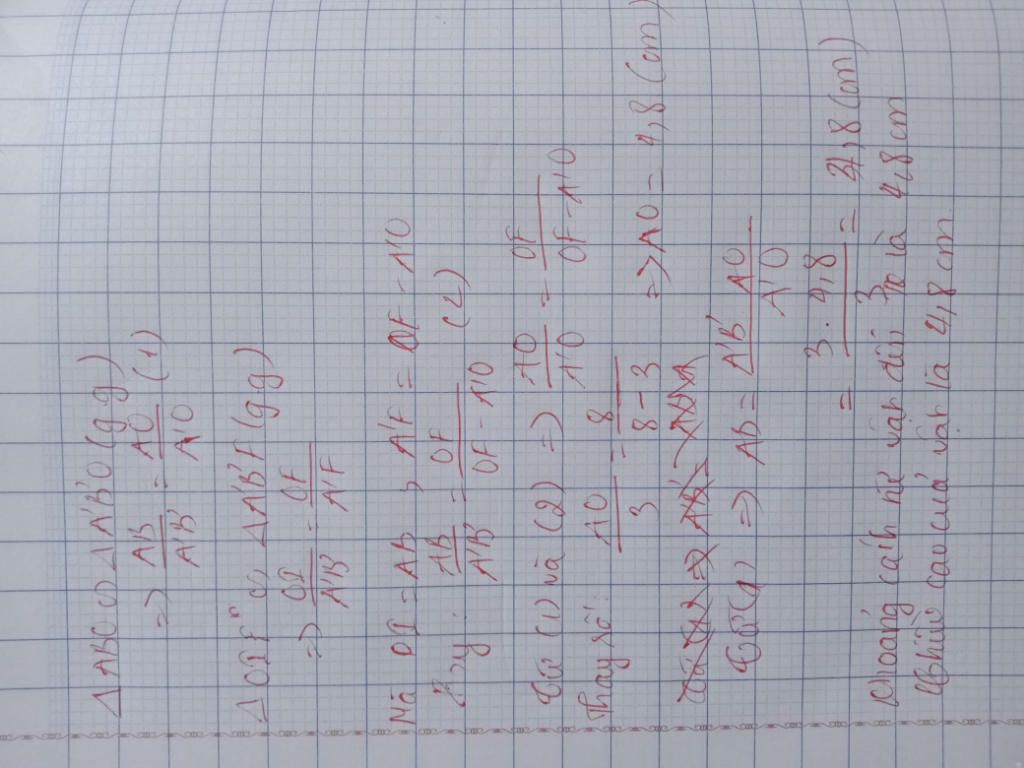 Δ ABO ∽ Δ A'B'O (g g)
=> AB/A'B' = AO/A'O (1)
Δ OIF ∽ Δ A'B'F (g g)
=> OI/A'B' = OF/A'F
Mà OI = AB, A'F = OF - A'O
Vậy: AB/A'B' = OF/(OF - A'O) (2)
Từ (1) và (2) => AO/A'O = OF/(OF - A'O)
Thay số: AO/3 = 8/(8 - 3) => AO = 4,8 (cm)
Từ (1) => AB = (A'B' . AO)/A'O
= (3 . 4,8)/3 = 4,8 (cm)
Khoảng cách từ vật đến là 4,8 cm
Chiều cao của vật là 4,8 cm